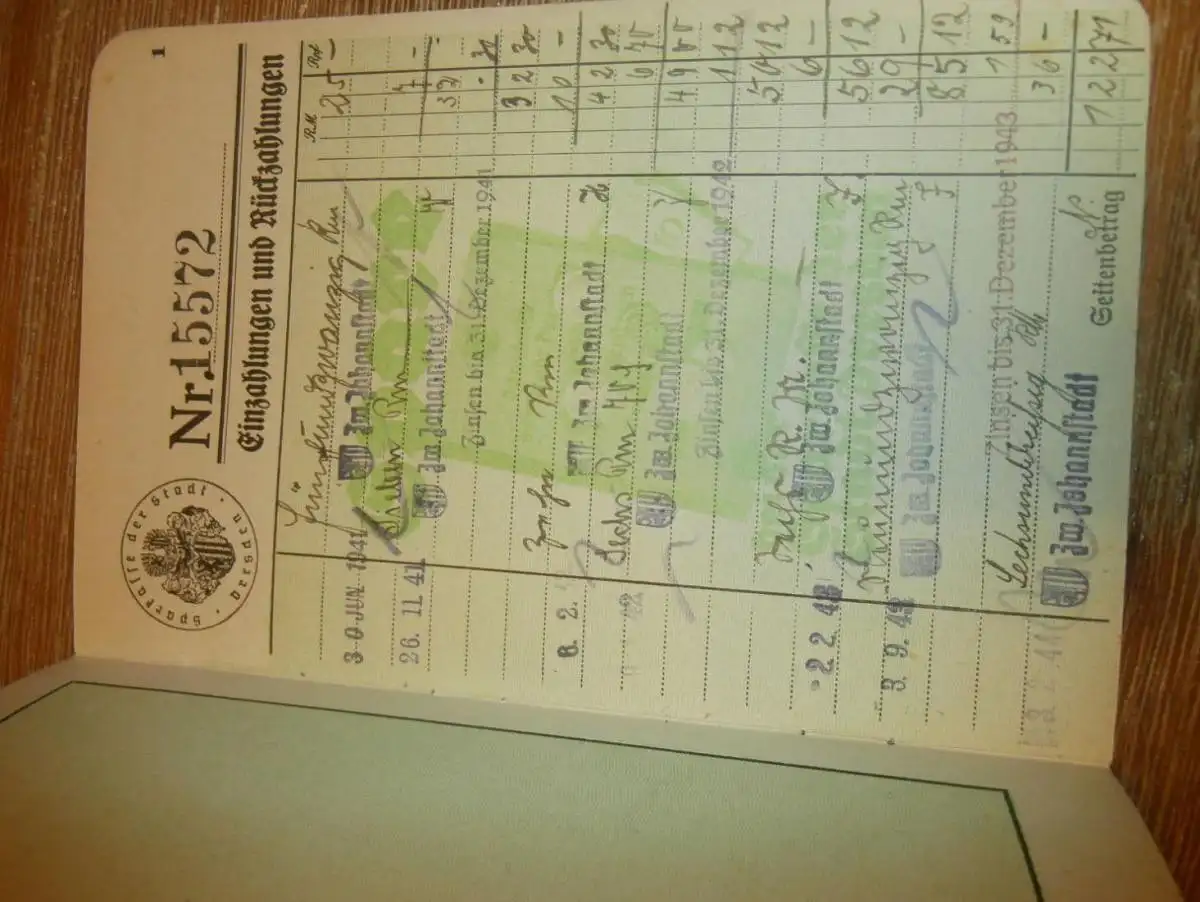 1
Sparkasse der Stadt Dresden
Nr. 15572
Einzahlungen und Rückzahlungen
RM Rpf
30 JUN 1941 Fünfundzwanzig Rm 25 -
Zw. Johannstadt
26. 11 41 Sieben Rm 7 -
Zw. Johannstadt 32 -
Zinsen bis 31. Dezember 1941 . 30
32 30
6. 2. Zehn Rm 10 -
Zw. Johannstadt 42 30
42 Sechs Rm 6 70
Zw. Johannstadt 49 00
Zinsen bis 31. Dezember 1942 1 12
50 12
-2. 2. 43 Sechs R.M. 6 -
Zw. Johannstadt 56 12
3. 9. 43 Neunundzwanzig Rm 29 -
Zw. Johannstadt 85 12
Zinsen bis 31. Dezember 1943 1 59
Sechsunddreißig 36 -
Zw. Johannstadt
Seitenbetrag 122 71